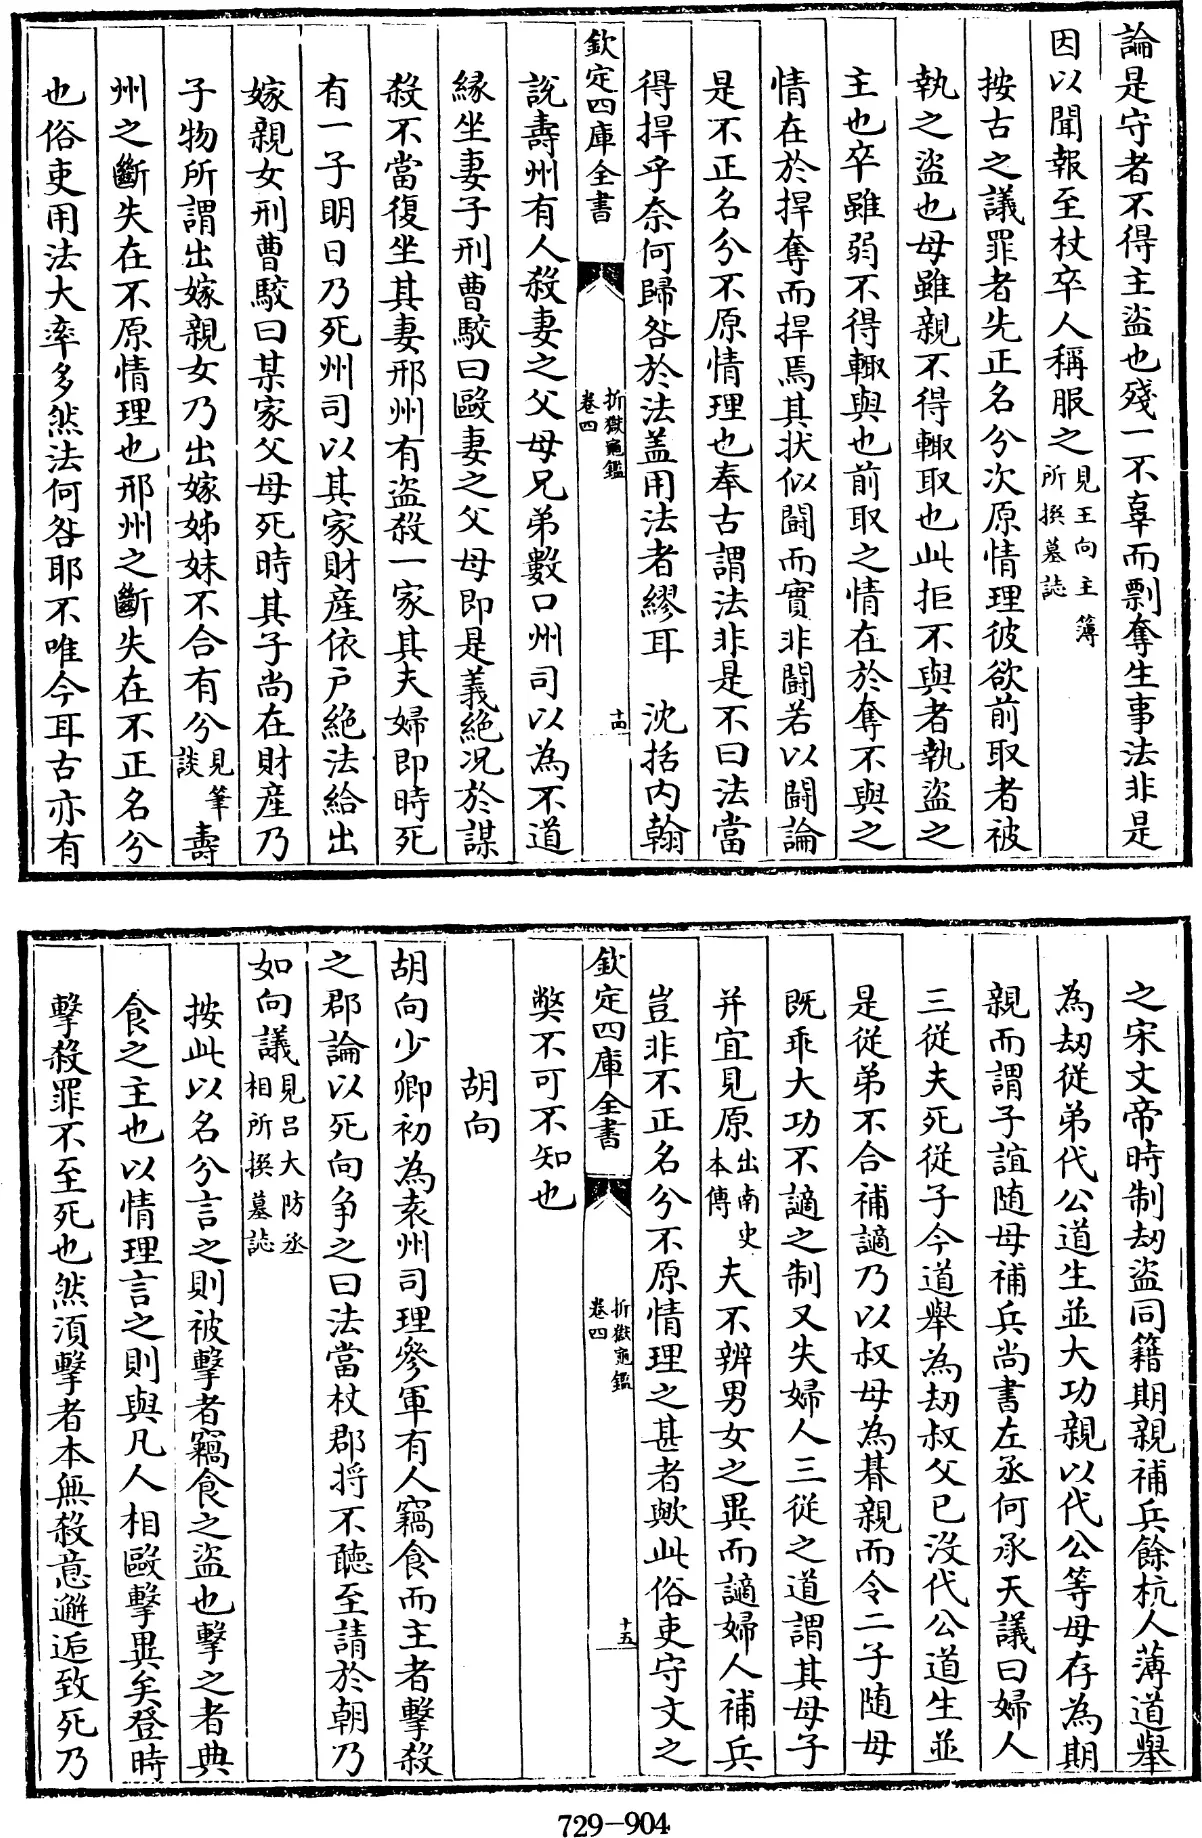 論是守者不得主盜也殘一不辜而剽奪生事法非是
因以聞報至杖卒人稱服之見王向主簿所撰墓誌
按古之議罪者先正名分次原情理彼欲前取者被
執之盜也母雖親不得輙取也此拒不與者執盜之
主也卒雖弱不得輙與也前取之情在於奪不與之
情在於捍奪而捍焉其狀似鬭而實非鬭若以鬭論
是不正名分不原情理也奉古謂法非是不曰法當
得捍乎奈何歸咎於法盖用法者繆耳　沈括内翰
欽定四庫全書
折獄龜鑑
卷四
十四
説壽州有人殺妻之父母兄弟數口州司以為不道
緣坐妻子刑曹駮曰毆妻之父母即是義絶况於謀
殺不當復坐其妻邢州有盜殺一家其夫婦即時死
有一子明日乃死州司以其家財產依户絶法給出
嫁親女刑曹駮曰某家父母死時其子尚在財產乃
子物所謂出嫁親女乃出嫁姊妹不合有分見筆談壽
州之斷失在不原情理也邢州之斷失在不正名分
也俗吏用法大率多然法何咎耶不唯今耳古亦有
之宋文帝時制刼盜同籍期親補兵餘杭人薄道舉
為刼從弟代公道生並大功親以代公等母存為期
親而謂子誼随母補兵尚書左丞何承天議曰婦人
三從夫死從子今道舉為刼叔父已没代公道生並
是從弟不合補謫乃以叔母為朞親而令二子随母
既乖大功不謫之制又失婦人三從之道謂其母子
并宜見原出南史本傳夫不辨男女之異而謫婦人補兵
豈非不正名分不原情理之甚者歟此俗吏守文之
欽定四庫全書
折獄龜鑑
卷四
十五
獘不可不知也
胡向
胡向少卿初為袁州司理參軍有人竊食而主者擊殺
之郡論以死向争之曰法當杖郡将不聽至請於朝乃
如向議見吕大防丞相所撰墓誌
按此以名分言之則被擊者竊食之盜也擊之者典
食之主也以情理言之則與凡人相毆擊異矣登時
擊殺罪不至死也然須擊者本無殺意邂逅致死乃
729-904